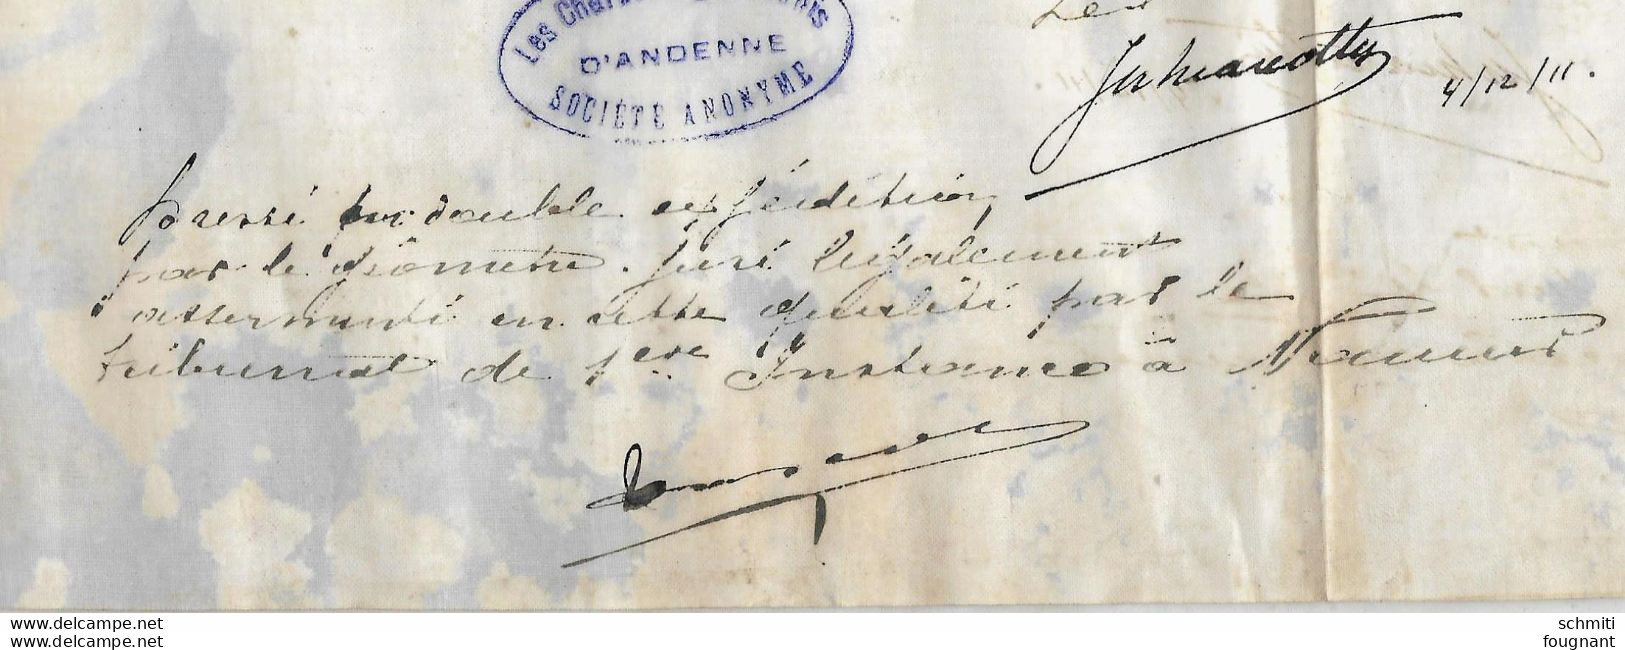 Les Char
D'ANDENNE
SOCIÉTÉ ANONYME
4/12/11.
Dressé par double expédition,
par le géomètre juré légalement
assermenté en cette qualité par le
tribunal de 1ere Instance à Namur
www.delcampe.net
schmiti
www.delcampe.net
fougnant